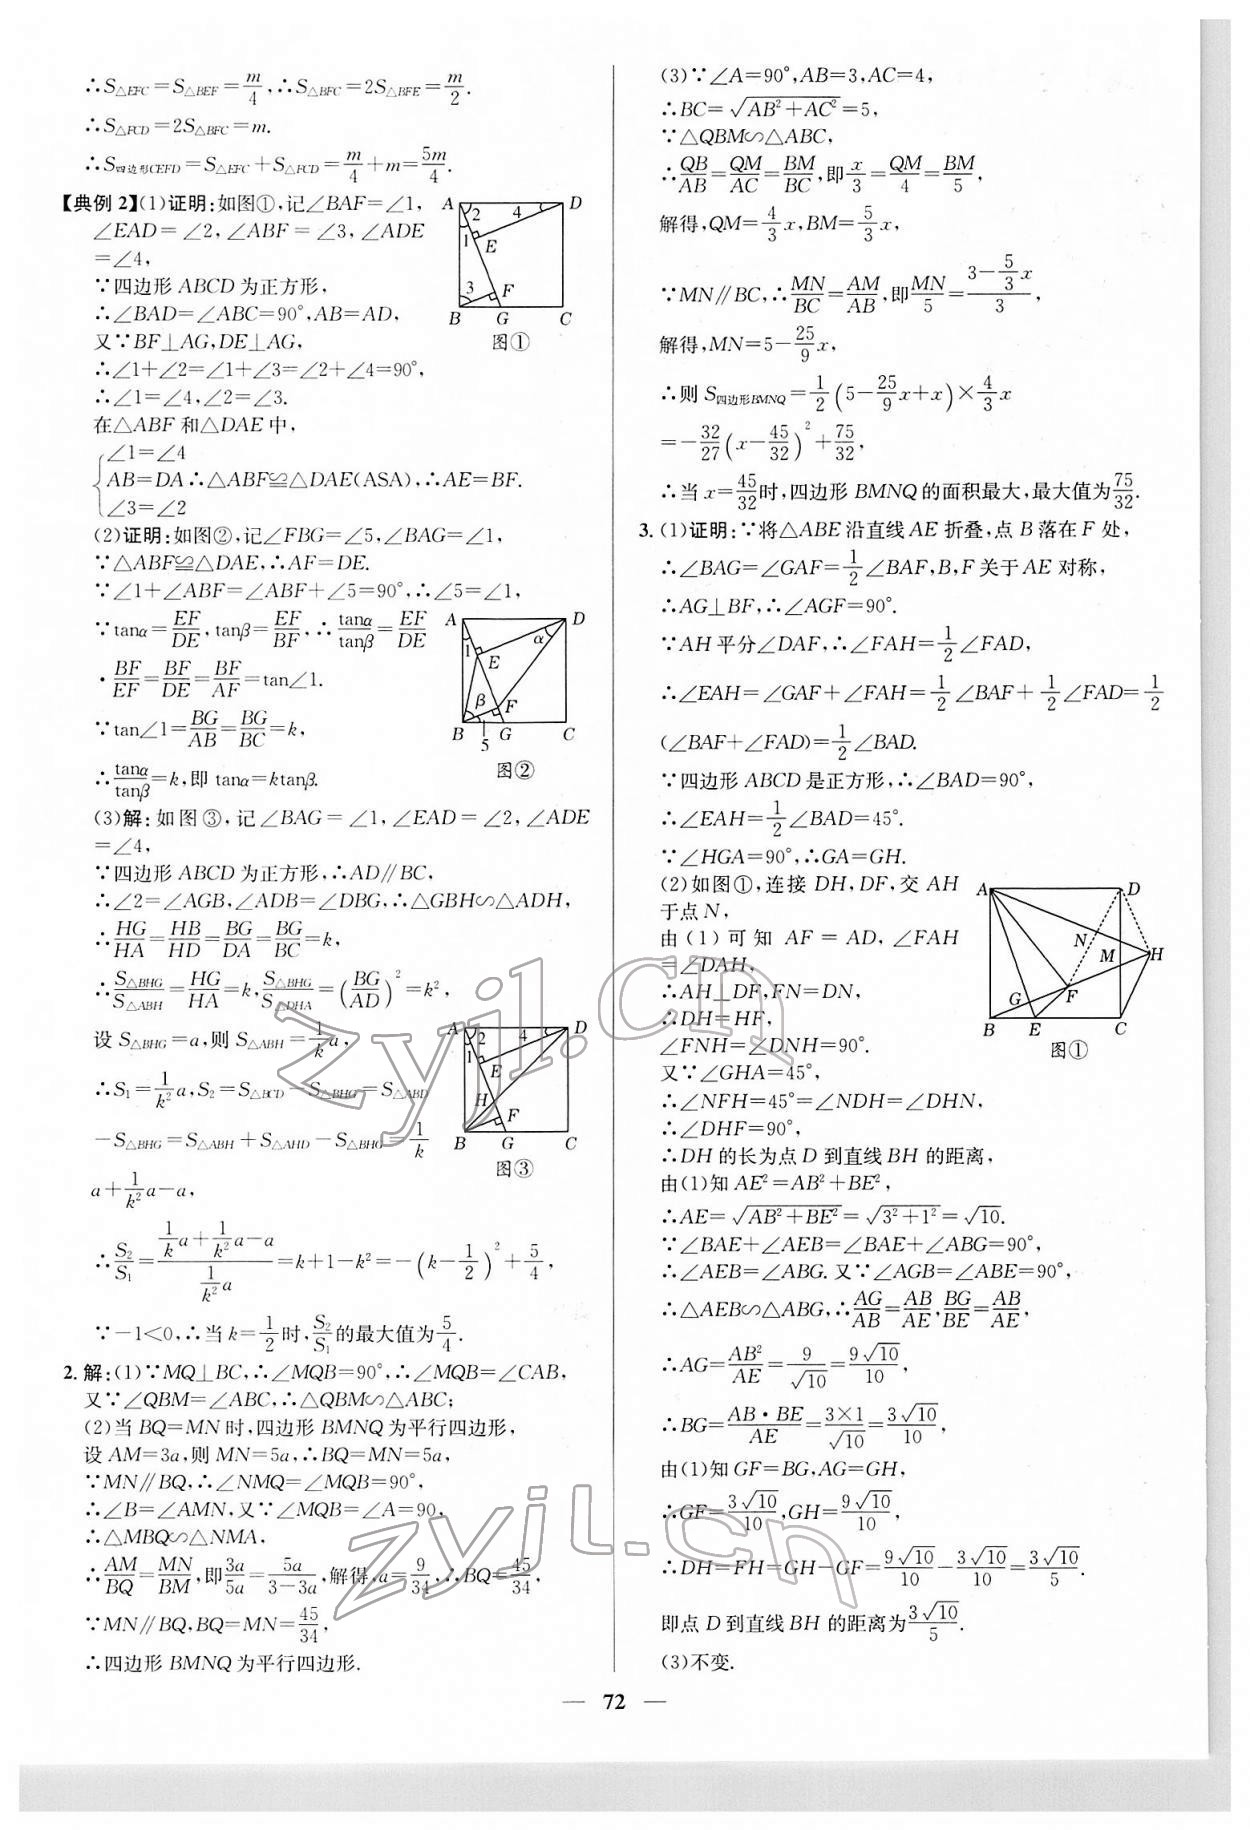 ∴S△EFC=S△BEF=m/4,∴S△BFC=2S△BFE=m/2.
∴S△FCD=2S△BFC=m.
∴S四边形CEFD=S△EFC+S△FCD=m/4+m=5m/4.
【典例2】(1)证明:如图①,记∠BAF=∠1,
∠EAD=∠2,∠ABF=∠3,∠ADE
=∠4,
∵四边形ABCD为正方形,
∴∠BAD=∠ABC=90°,AB=AD,
又∵BF⊥AG,DE⊥AG,
∴∠1+∠2=∠1+∠3=∠2+∠4=90°,
∴∠1=∠4,∠2=∠3.
在△ABF和△DAE中,
∠1=∠4
AB=DA∴△ABF≌△DAE(ASA),∴AE=BF.
∠3=∠2
A 2 4 D 1 E 3 F B G C
图①
(2)证明:如图②,记∠FBG=∠5,∠BAG=∠1,
∵△ABF≌△DAE,∴AF=DE.
∵∠1+∠ABF=∠ABF+∠5=90°,∴∠5=∠1,
∵tanα=EF/DE,tanβ=EF/BF,∴tanα/tanβ=EF/DE
·BF/EF=BF/DE=BF/AF=tan∠1.
∵tan∠1=BG/AB=BG/BC=k,
∴tanα/tanβ=k,即tanα=ktanβ.
A D α 1 E β F B 5 G C
图②
(3)解:如图③,记∠BAG=∠1,∠EAD=∠2,∠ADE
=∠4,
∵四边形ABCD为正方形,∴AD∥BC,
∴∠2=∠AGB,∠ADB=∠DBG,∴△GBH∽△ADH,
∴HG/HA=HB/HD=BG/DA=BG/BC=k,
∴S△BHG/S△ABH=HG/HA=k,S△BHG/S△DHA=(BG/AD)²=k²,
设S△BHG=a,则S△ABH=1/k a,
∴S₁=1/k² a,S₂=S△BCD-S△BHG=S△ABD
-S△BHG=S△ABH+S△AHD-S△BHG=1/k
a+1/k² a-a,
A 2 4 D 1 E H F B G C
图③
∴S₂/S₁=(1/k a+1/k² a-a)/(1/k² a)=k+1-k²=-(k-1/2)²+5/4,
∵-1<0,∴当k=1/2时,S₂/S₁的最大值为5/4.
2.解:(1)∵MQ⊥BC,∴∠MQB=90°,∴∠MQB=∠CAB,
又∵∠QBM=∠ABC,∴△QBM∽△ABC;
(2)当BQ=MN时,四边形BMNQ为平行四边形,
设AM=3a,则MN=5a,∴BQ=MN=5a,
∵MN∥BQ,∴∠NMQ=∠MQB=90°,
∴∠B=∠AMN,又∵∠MQB=∠A=90°,
∴△MBQ∽△NMA,
∴AM/BQ=MN/BM,即3a/5a=5a/(3-3a),解得,a=9/34,∴BQ=45/34,
∵MN∥BQ,BQ=MN=45/34,
∴四边形BMNQ为平行四边形.
(3)∵∠A=90°,AB=3,AC=4,
∴BC=√(AB²+AC²)=5,
∵△QBM∽△ABC,
∴QB/AB=QM/AC=BM/BC,即x/3=QM/4=BM/5,
解得,QM=4/3 x,BM=5/3 x,
∵MN∥BC,∴MN/BC=AM/AB,即MN/5=(3-5/3 x)/3,
解得,MN=5-25/9 x,
∴则S四边形BMNQ=1/2(5-25/9 x+x)×4/3 x
=-32/27(x-45/32)²+75/32,
∴当x=45/32时,四边形BMNQ的面积最大,最大值为75/32.
3.(1)证明:∵将△ABE沿直线AE折叠,点B落在F处,
∴∠BAG=∠GAF=1/2∠BAF,B,F关于AE对称,
∴AG⊥BF,∴∠AGF=90°.
∵AH平分∠DAF,∴∠FAH=1/2∠FAD,
∴∠EAH=∠GAF+∠FAH=1/2∠BAF+1/2∠FAD=1/2
(∠BAF+∠FAD)=1/2∠BAD.
∵四边形ABCD是正方形,∴∠BAD=90°,
∴∠EAH=1/2∠BAD=45°.
∵∠HGA=90°,∴GA=GH.
(2)如图①,连接DH,DF,交AH
于点N,
由(1)可知AF=AD,∠FAH
=∠DAH,
∴AH⊥DF,FN=DN,
∴DH=HF,
∠FNH=∠DNH=90°.
又∵∠GHA=45°,
∴∠NFH=45°=∠NDH=∠DHN,
∴∠DHF=90°,
A D N M H G F B E C
图①
∴DH的长为点D到直线BH的距离,
由(1)知AE²=AB²+BE²,
∴AE=√(AB²+BE²)=√(3²+1²)=√10.
∵∠BAE+∠AEB=∠BAE+∠ABG=90°,
∴∠AEB=∠ABG.又∵∠AGB=∠ABE=90°,
∴△AEB∽△ABG,∴AG/AB=AB/AE,BG/BE=AB/AE,
∴AG=AB²/AE=9/√10=9√10/10,
∴BG=AB·BE/AE=3×1/√10=3√10/10,
由(1)知GF=BG,AG=GH,
∴GF=3√10/10,GH=9√10/10,
∴DH=FH=GH-GF=9√10/10-3√10/10=3√10/5.
即点D到直线BH的距离为3√10/5.
(3)不变.
— 72 —
zyjl.cn
zyjl.cn